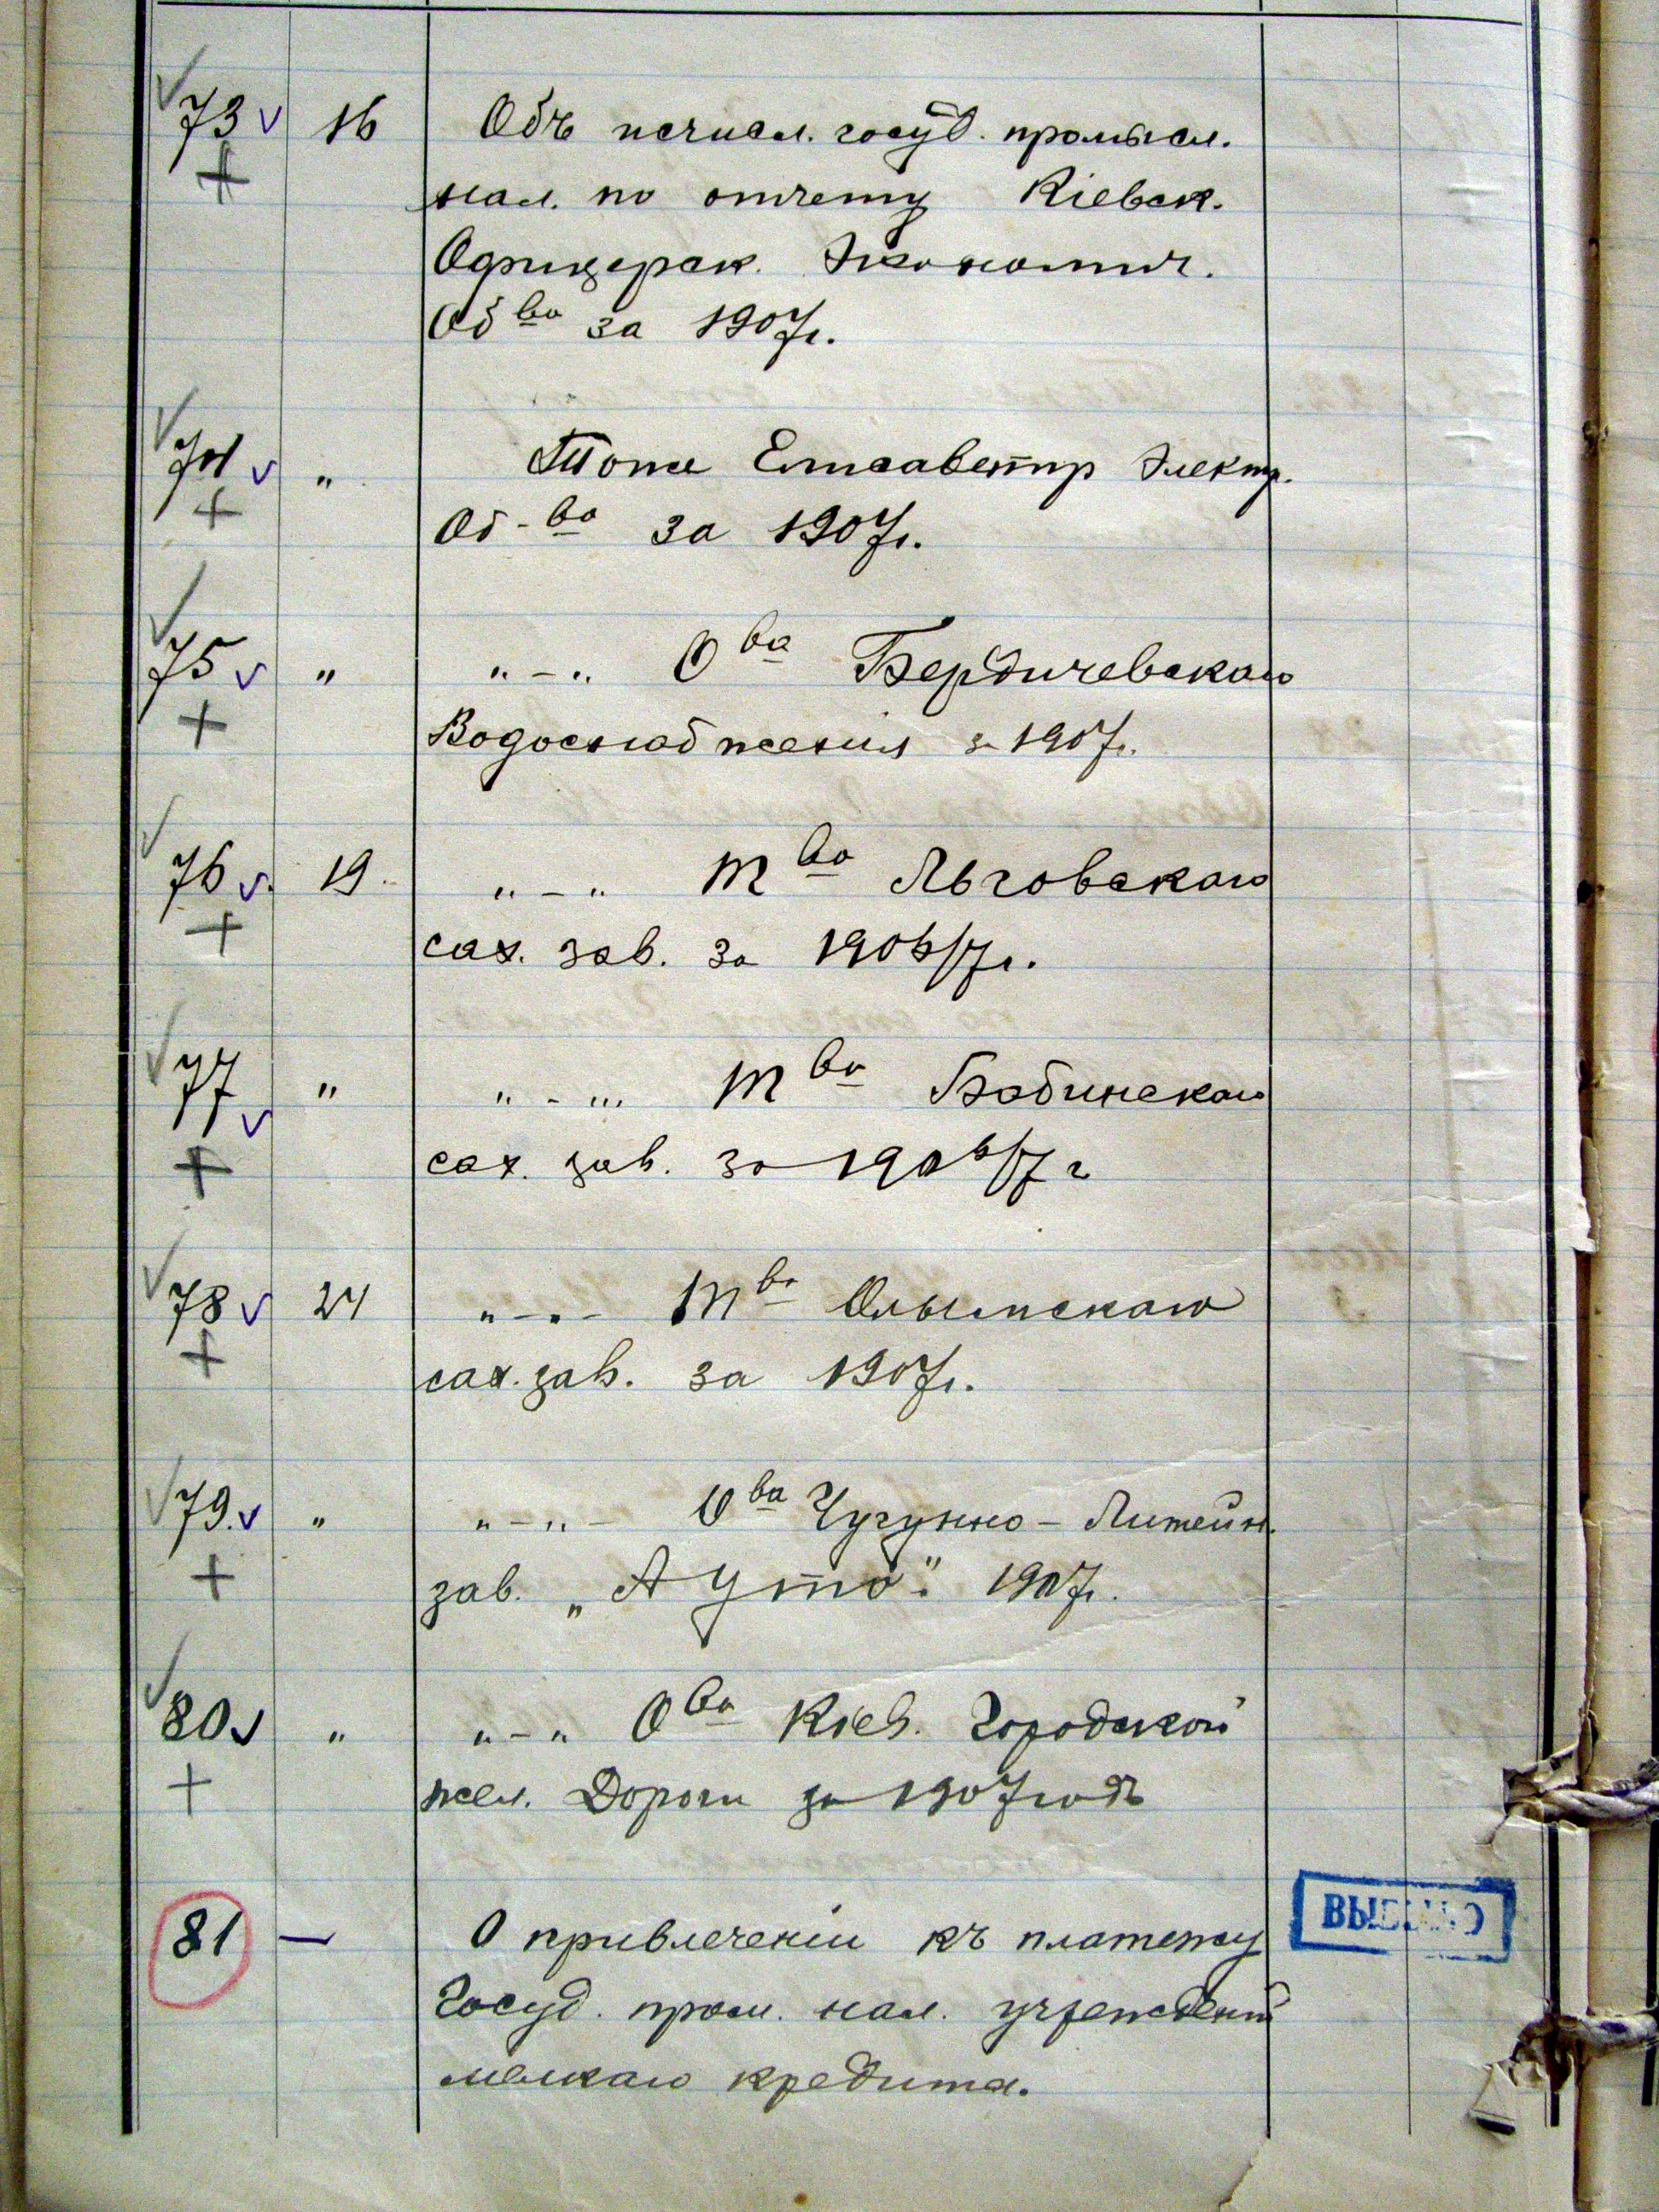 73 16 Объ исчисл. госуд. промысл.
нал. по отчету Кіевск.
Офицерск. Экономич.
Об ва за 1907г.
74 " Тоже Елисаветгр Электр.
Об-ва за 1907г.
75 " "-" О ва Бердичевскаго
Водоснабженія за 1907г.
76 19. "-" Т ва Льговскаго
сах. зав. за 1906/7г.
77 " "-" Т ва Бабинскаго
сах. зав. за 1906/7г
78 24 "-"- Т ва Олымскаго
сах. зав. за 1907г.
79. " "-"- О ва Чугунно-Литейн.
зав. „Ауто" 1907г.
80 " "-" О ва Кіев. Городской
жел. Дороги за 1907 годъ
81 — О привлеченіи къ платежу
ВЫБЫЛО
Госуд. пром. нал. учрежденій
мелкаго кредита.